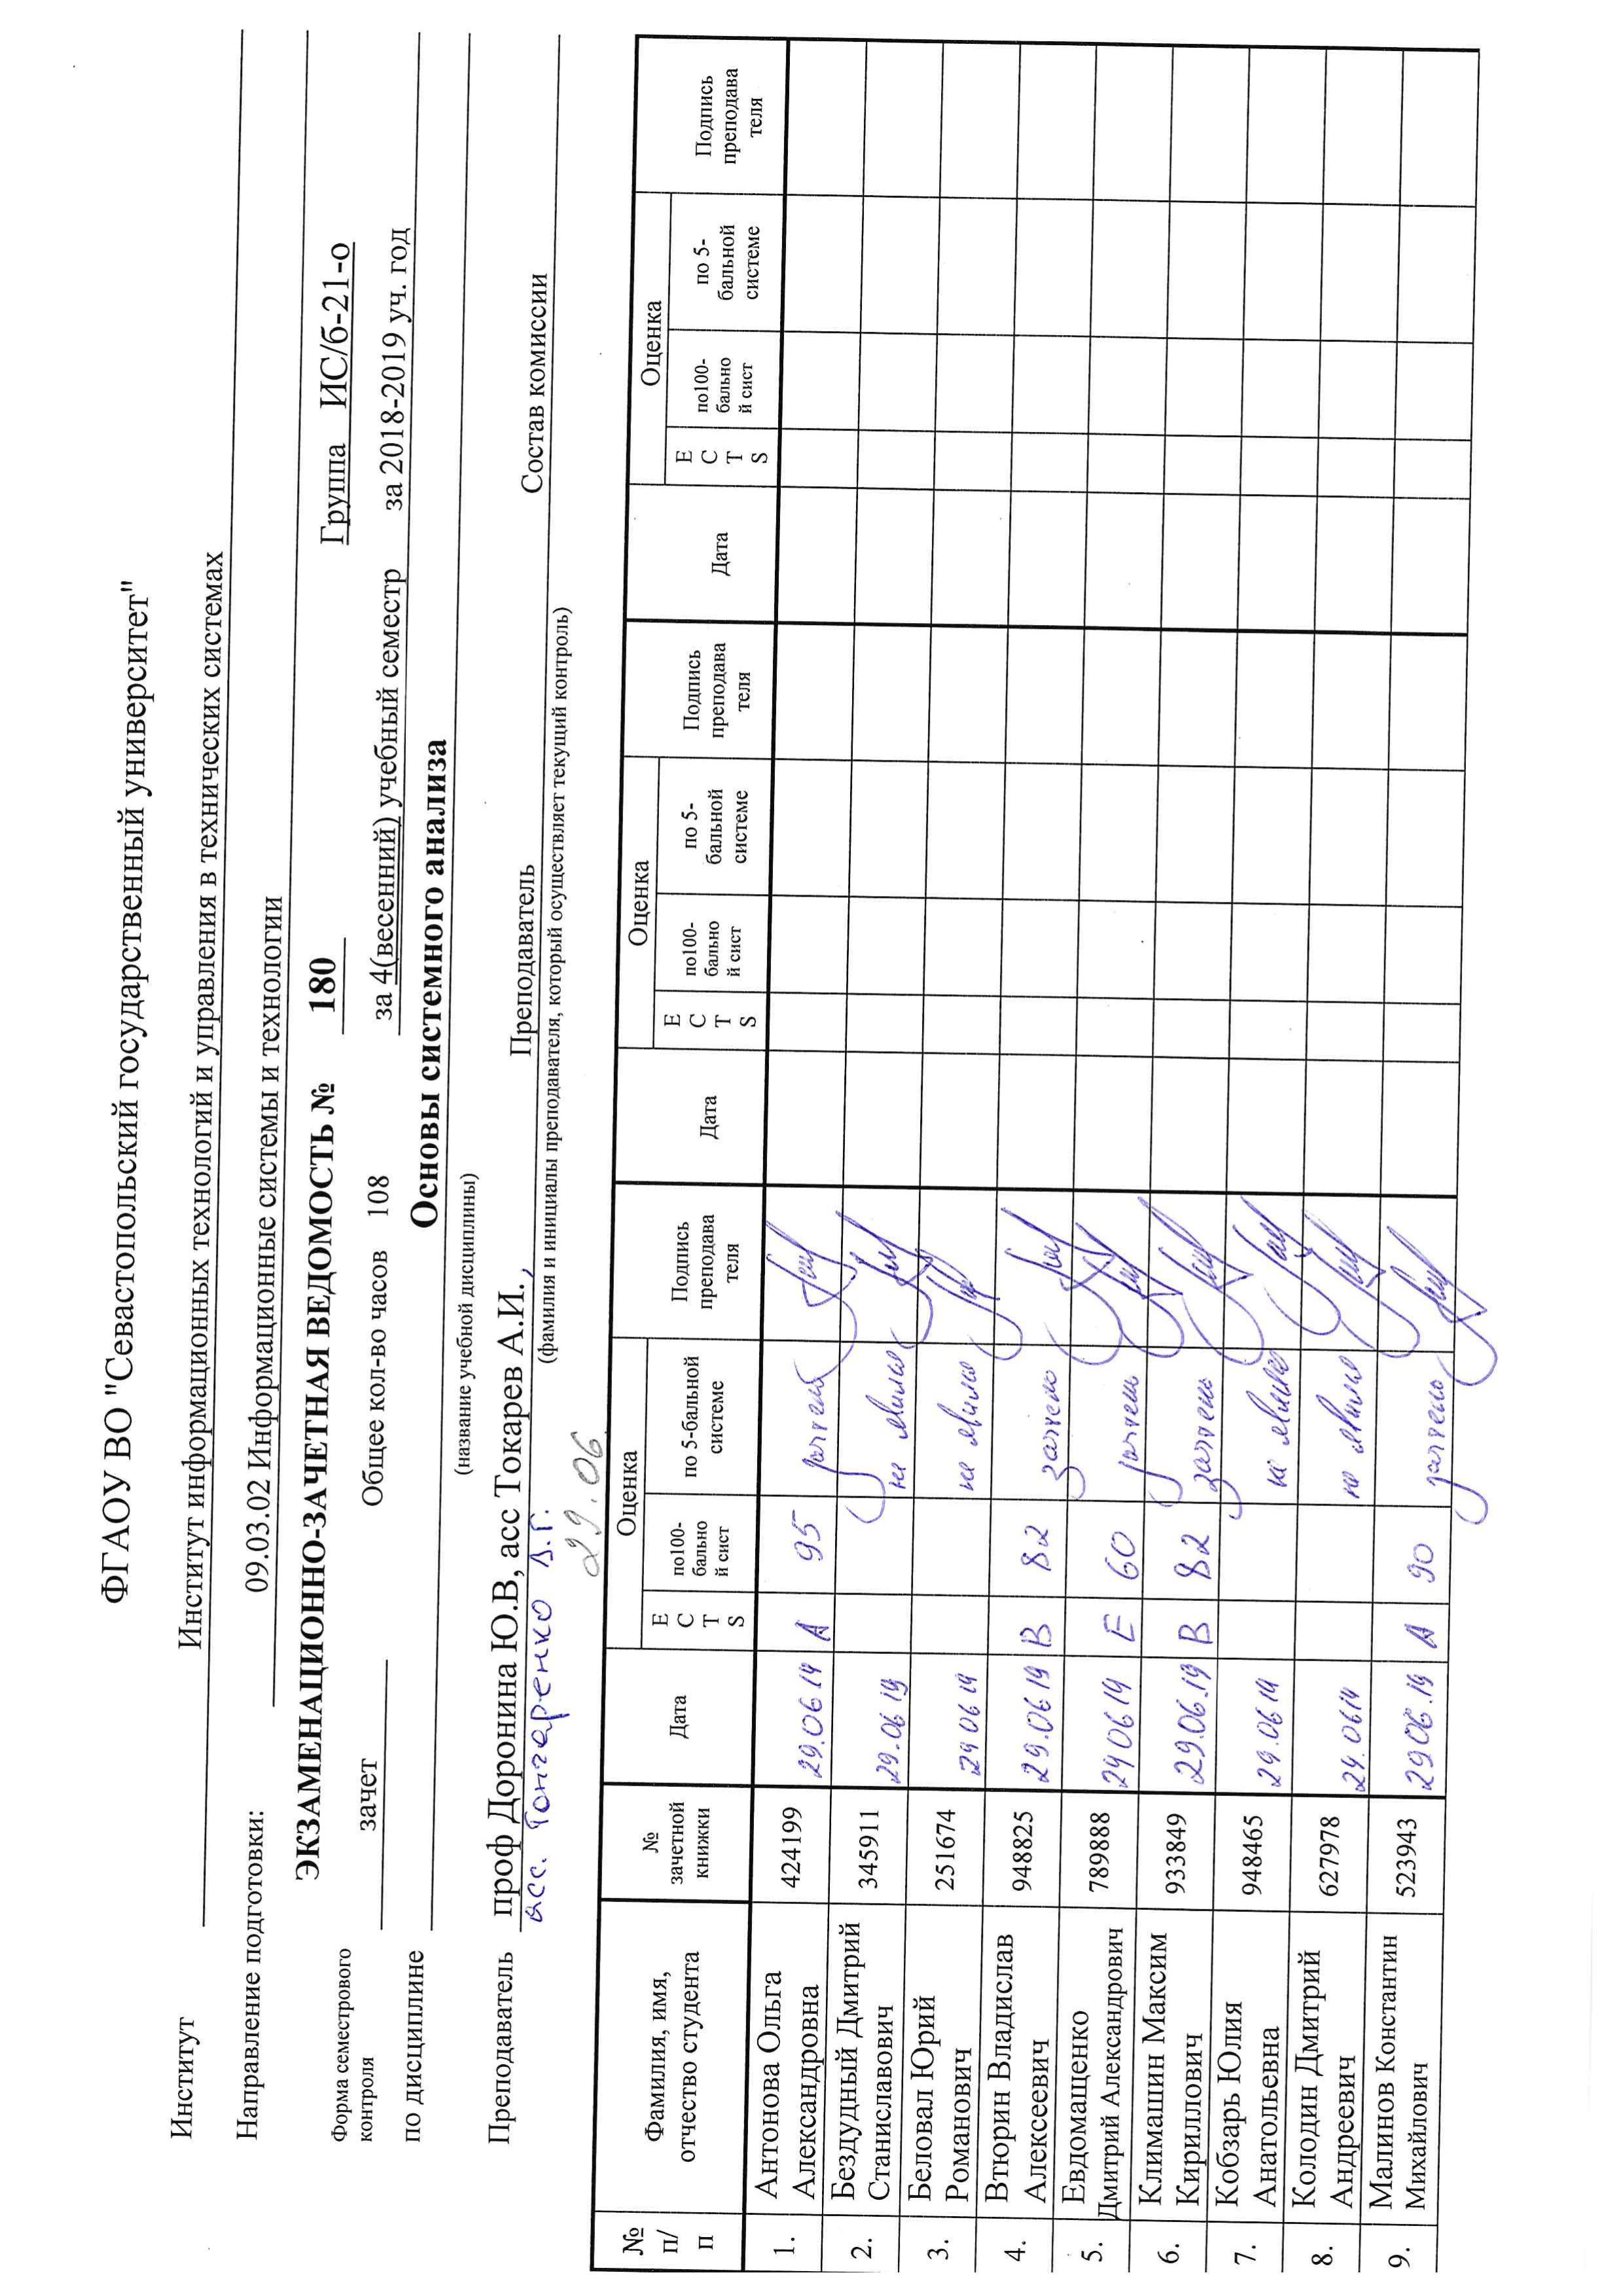 ФГАОУ ВО "Севастопольский государственный университет"
Институт Институт информационных технологий и управления в технических системах
Направление подготовки: 09.03.02 Информационные системы и технологии
ЭКЗАМЕНАЦИОННО-ЗАЧЕТНАЯ ВЕДОМОСТЬ № 180 Группа ИС/б-21-о
Форма семестрового
контроля зачет Общее кол-во часов 108 за 4(весенний) учебный семестр за 2018-2019 уч. год
по дисциплине Основы системного анализа
(название учебной дисциплины)
Преподаватель проф Доронина Ю.В, асс Токарев А.И., Преподаватель Состав комиссии
асс. Гончаренко Д.Г. (фамилия и инициалы преподавателя, который осуществляет текущий контроль)
29.06.
№ п/п Фамилия, имя, отчество студента № зачетной книжки Дата Оценка ECTS по100-бально й сист по 5-бальной системе Подпись преподава теля Дата Оценка ECTS по100-бально й сист по 5-бальной системе Подпись преподава теля Дата Оценка ECTS по100-бально й сист по 5-бальной системе Подпись преподава теля
1. Антонова Ольга
Александровна 424199 29.06 19 A 95 зачтено
2. Бездудный Дмитрий
Станиславович 345911 29.06 19 не явился
3. Беловал Юрий
Романович 251674 29 06 19 не явился
4. Втюрин Владислав
Алексеевич 948825 29.06 19 B 82 зачтено
5. Евдомащенко
Дмитрий Александрович 789888 29 06 19 E 60 зачтено
6. Климашин Максим
Кириллович 933849 29.06.19 B 82 зачтено
7. Кобзарь Юлия
Анатольевна 948465 29.06 19 не явился
8. Колодин Дмитрий
Андреевич 627978 29.06 19 не явился
9. Малинов Константин
Михайлович 523943 29 06.19 A 90 зачтено